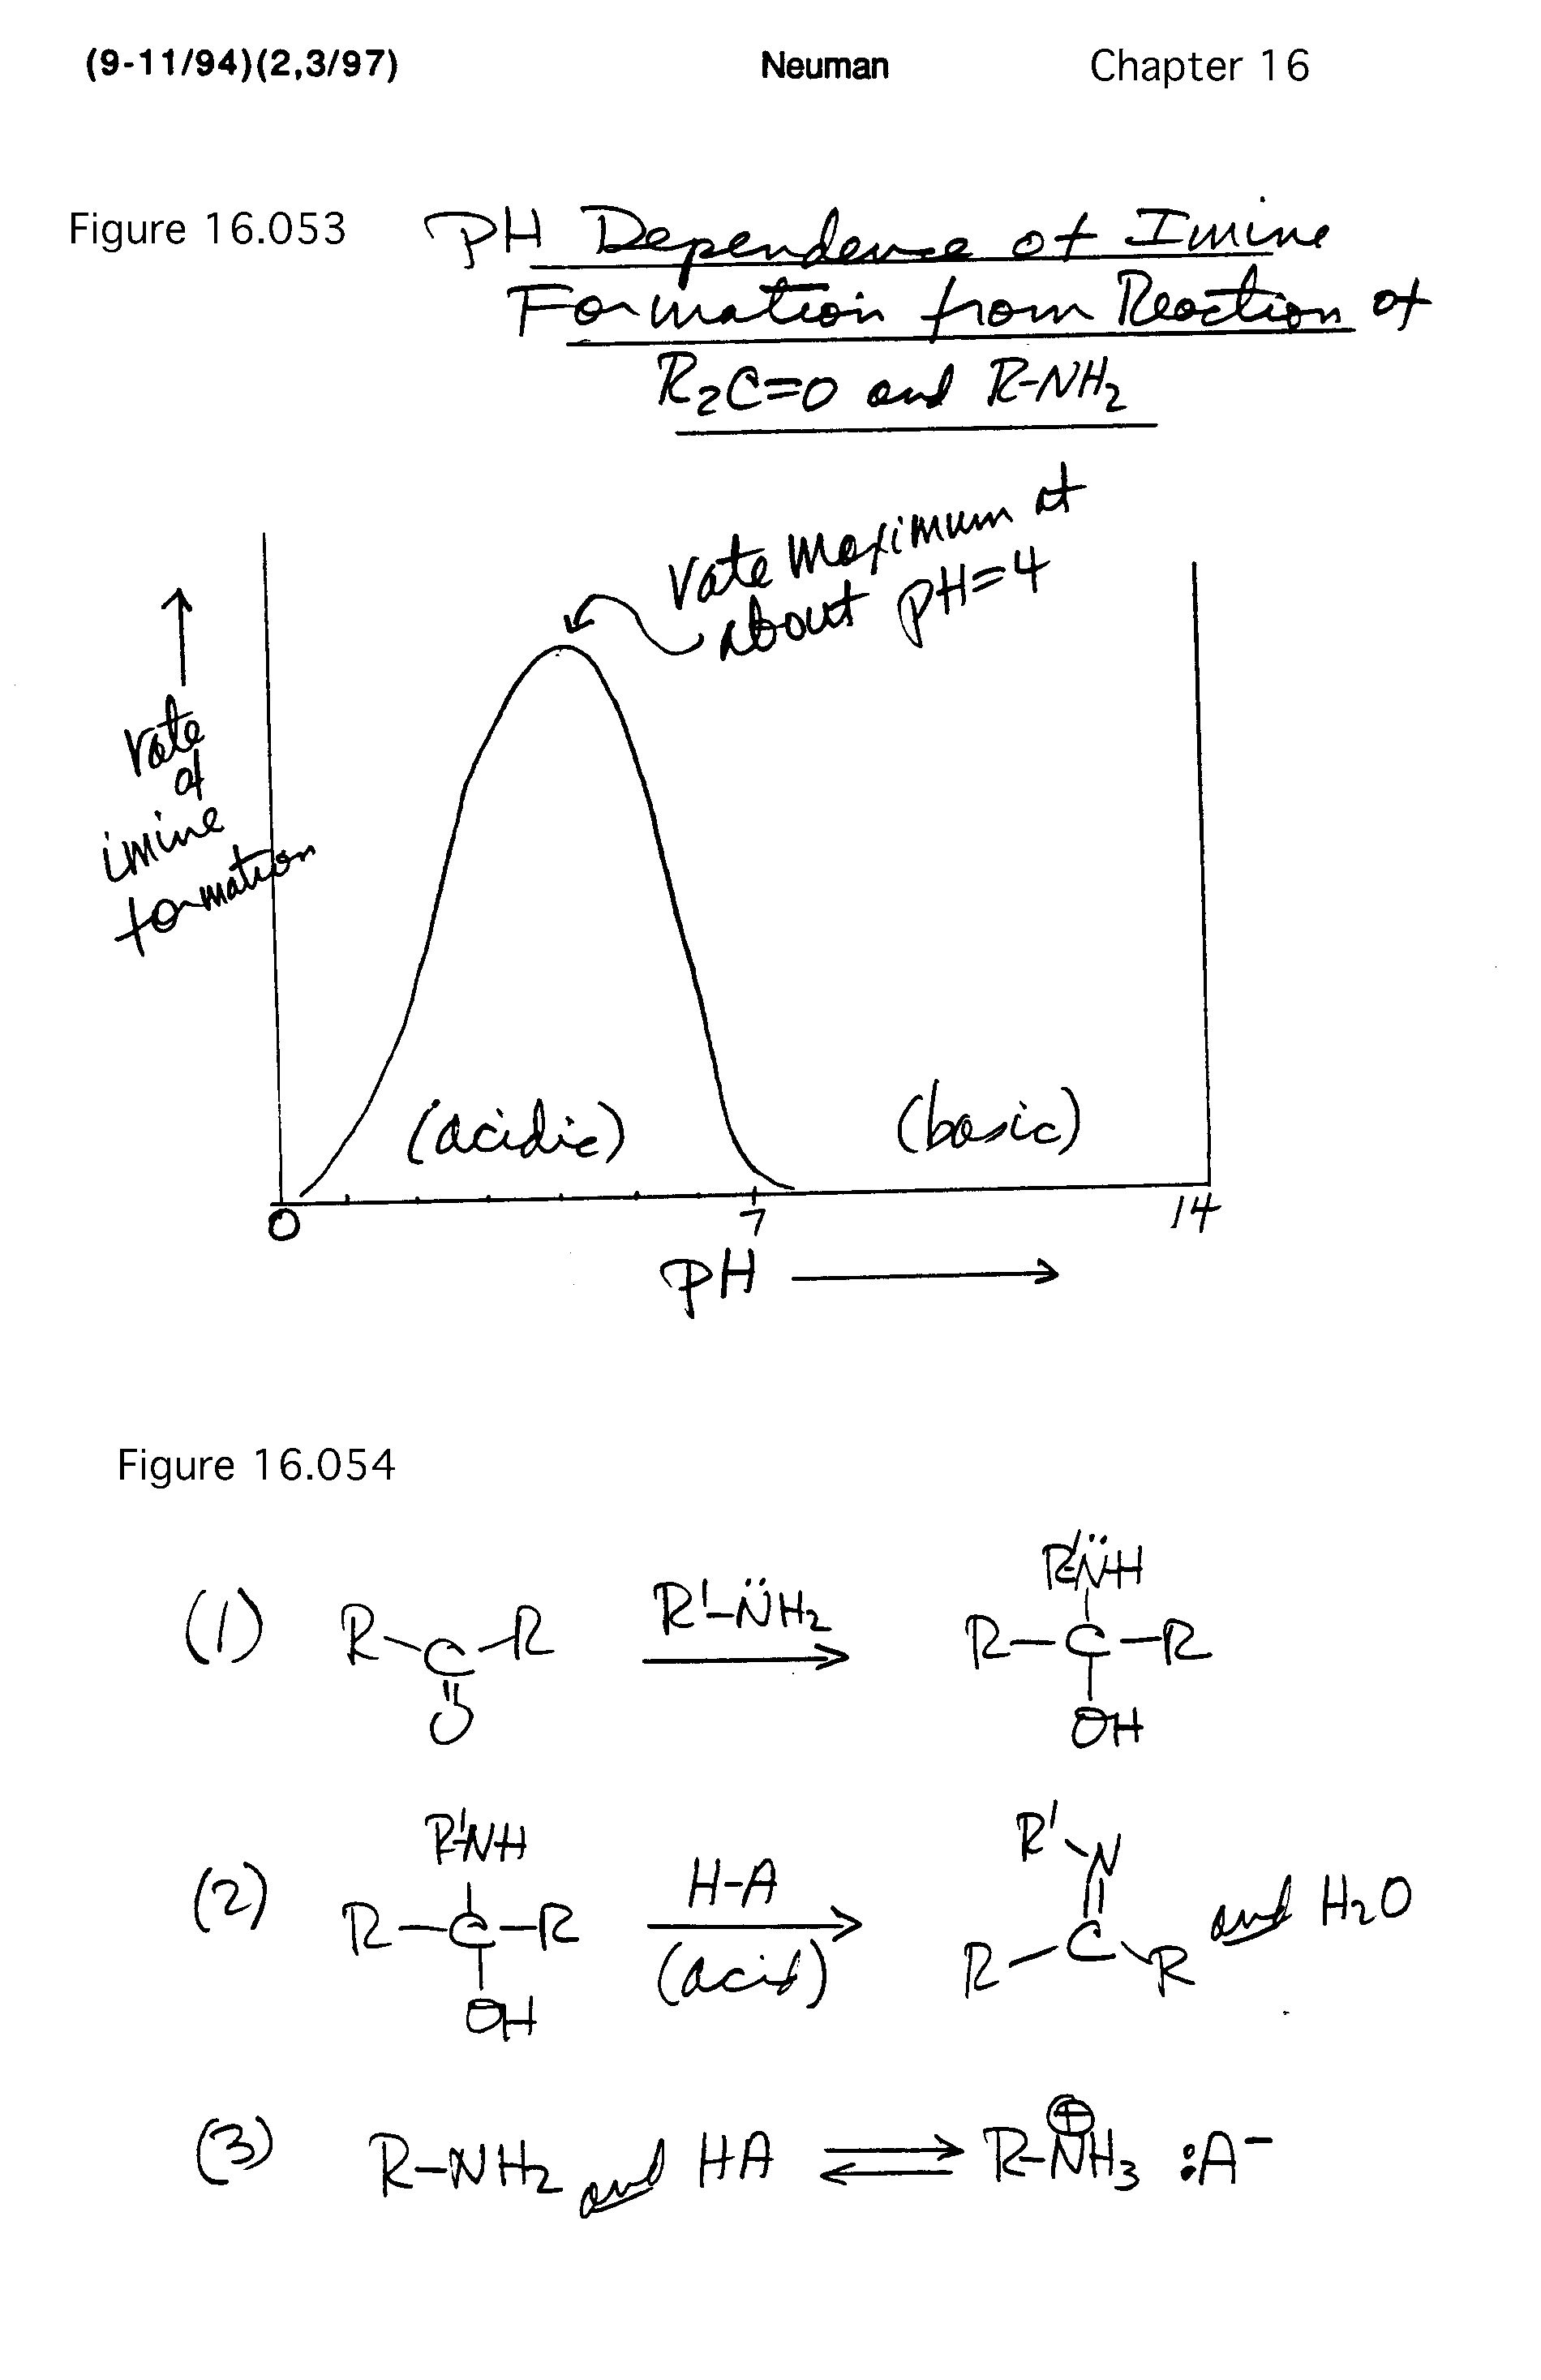 (9-11/94)(2,3/97) Neuman Chapter 16
Figure 16.053 PH Dependence of Imine
Formation from Reaction of
R₂C=O and R-NH₂
rate maximum at
about pH=4
rate
of
imine
formation
(acidic) (basic)
0 7 14
PH
Figure 16.054
(1) R C R R'-N̈H₂ R'-N̈H
R-C-R
O OH
(2) R'-NH H-A R' N
R-C-R (acid) R C R and H₂O
OH
(3) R-NH₂ and HA ⇌ R-NH₃ ⊕ :A⁻